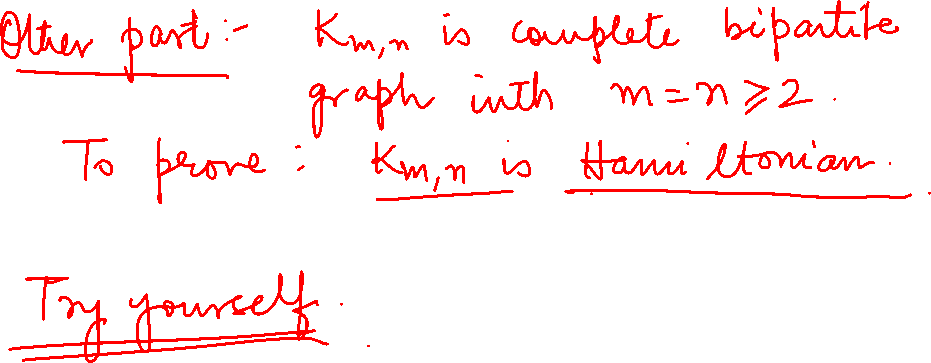 Other part :- Km,n is complete bipartite
graph with m=n≥2.
To prove : Km,n is Hamiltonian.
Try yourself.